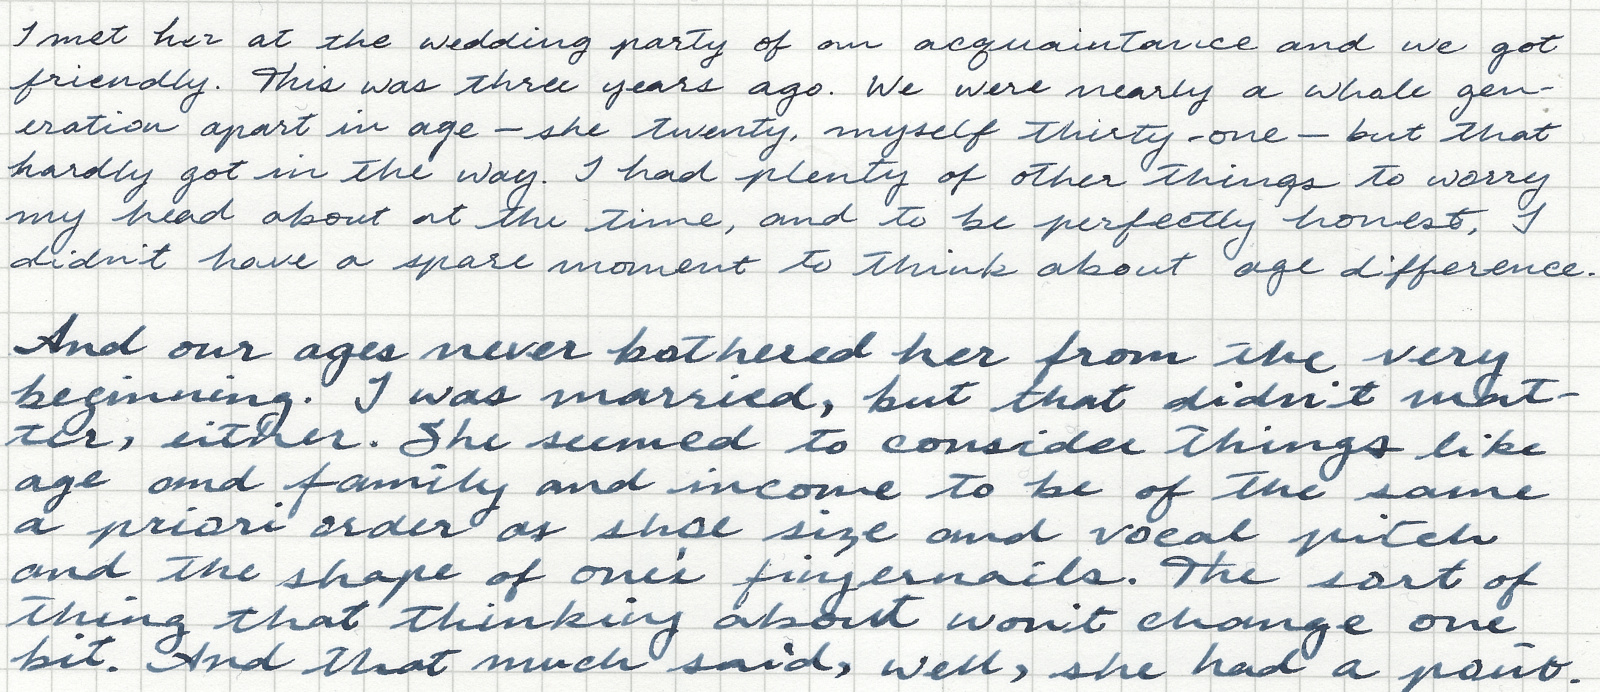 I met her at the wedding party of an acquaintance and we got
friendly. This was three years ago. We were nearly a whole gen-
eration apart in age – she twenty, myself thirty-one – but that
hardly got in the way. I had plenty of other things to worry
my head about at the time, and to be perfectly honest, I
didn't have a spare moment to think about age difference.
And our ages never bothered her from the very
beginning. I was married, but that didn't mat-
ter, either. She seemed to consider things like
age and family and income to be of the same
a priori order as shoe size and vocal pitch
and the shape of one's fingernails. The sort of
thing that thinking about won't change one
bit. And that much said, well, she had a point.